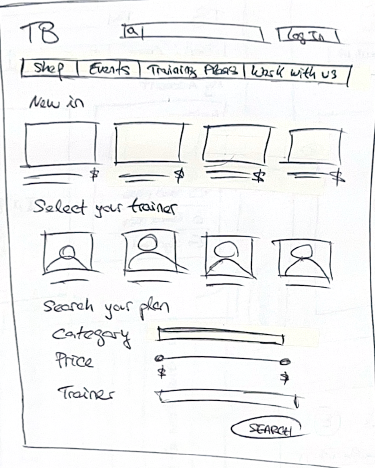 TB Q Log In
Shop | Events | Training Plans | Work with us
New in
$ $ $ $
Select your trainer
Search your plan
Category
Price
$ $
Trainer
SEARCH